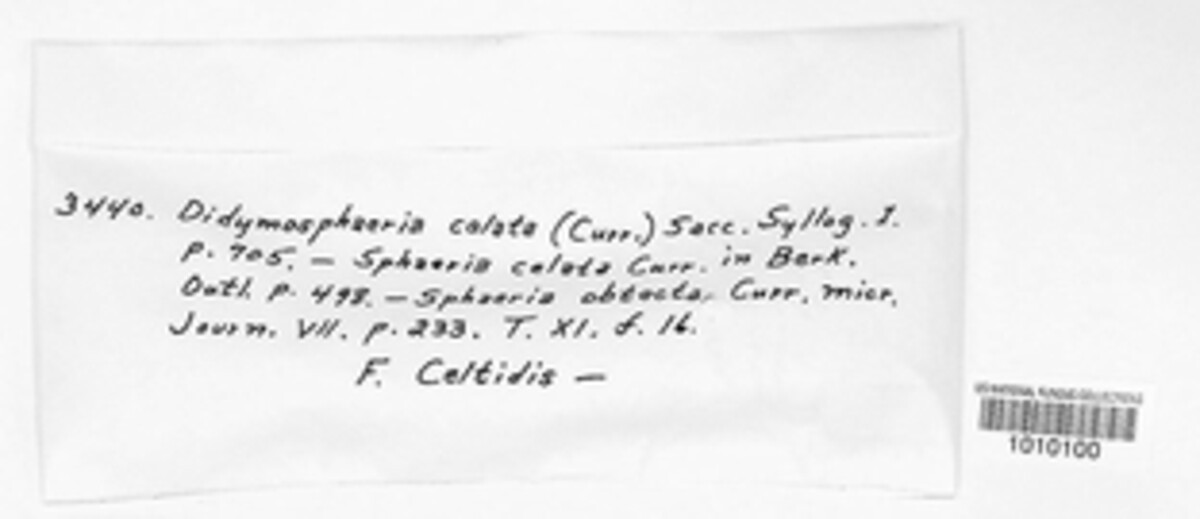 3440. Didymosphaeria celata (Curr.) Sacc. Syllog. I.
p. 705. — Sphaeria celata Curr. in Berk.
Outl. p. 498. — Sphaeria obtecta, Curr. micr.
Journ. VII. p. 233. T. XI. f. 16.
F. Celtidis —
US NATIONAL FUNGUS COLLECTIONS
1010100